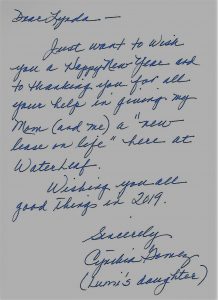 Dear Lynda —
Just want to wish
you a Happy New Year and
to thanking you for all
your help in giving my
Mom (and me) a "new
lease on life" here at
Waterleaf.
Wishing you all
good things in 2019.
Sincerely
Cynthia Gomez
(Lumi's daughter)